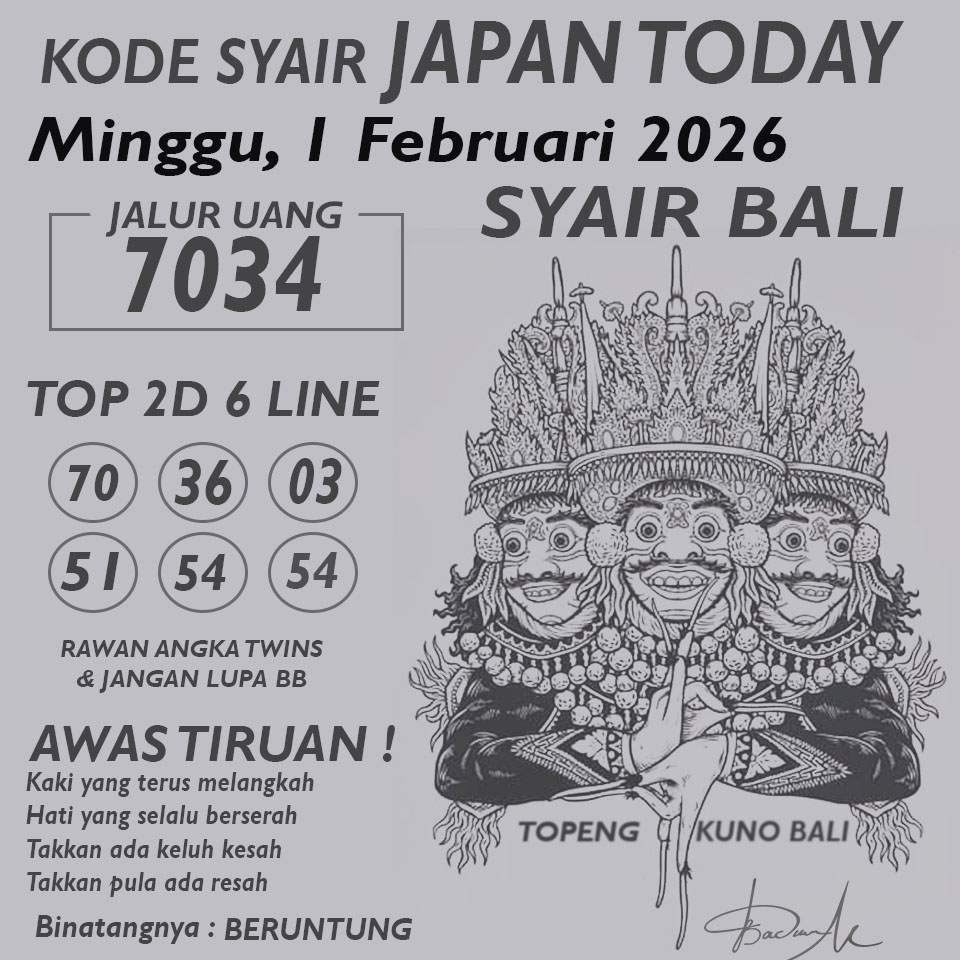 KODE SYAIR JAPAN TODAY
Minggu, 1 Februari 2026
SYAIR BALI
JALUR UANG
7034
TOP 2D 6 LINE
70 36 03
51 54 54
RAWAN ANGKA TWINS
& JANGAN LUPA BB
AWAS TIRUAN !
Kaki yang terus melangkah
Hati yang selalu berserah
Takkan ada keluh kesah
Takkan pula ada resah
Binatangnya : BERUNTUNG
TOPENG KUNO BALI